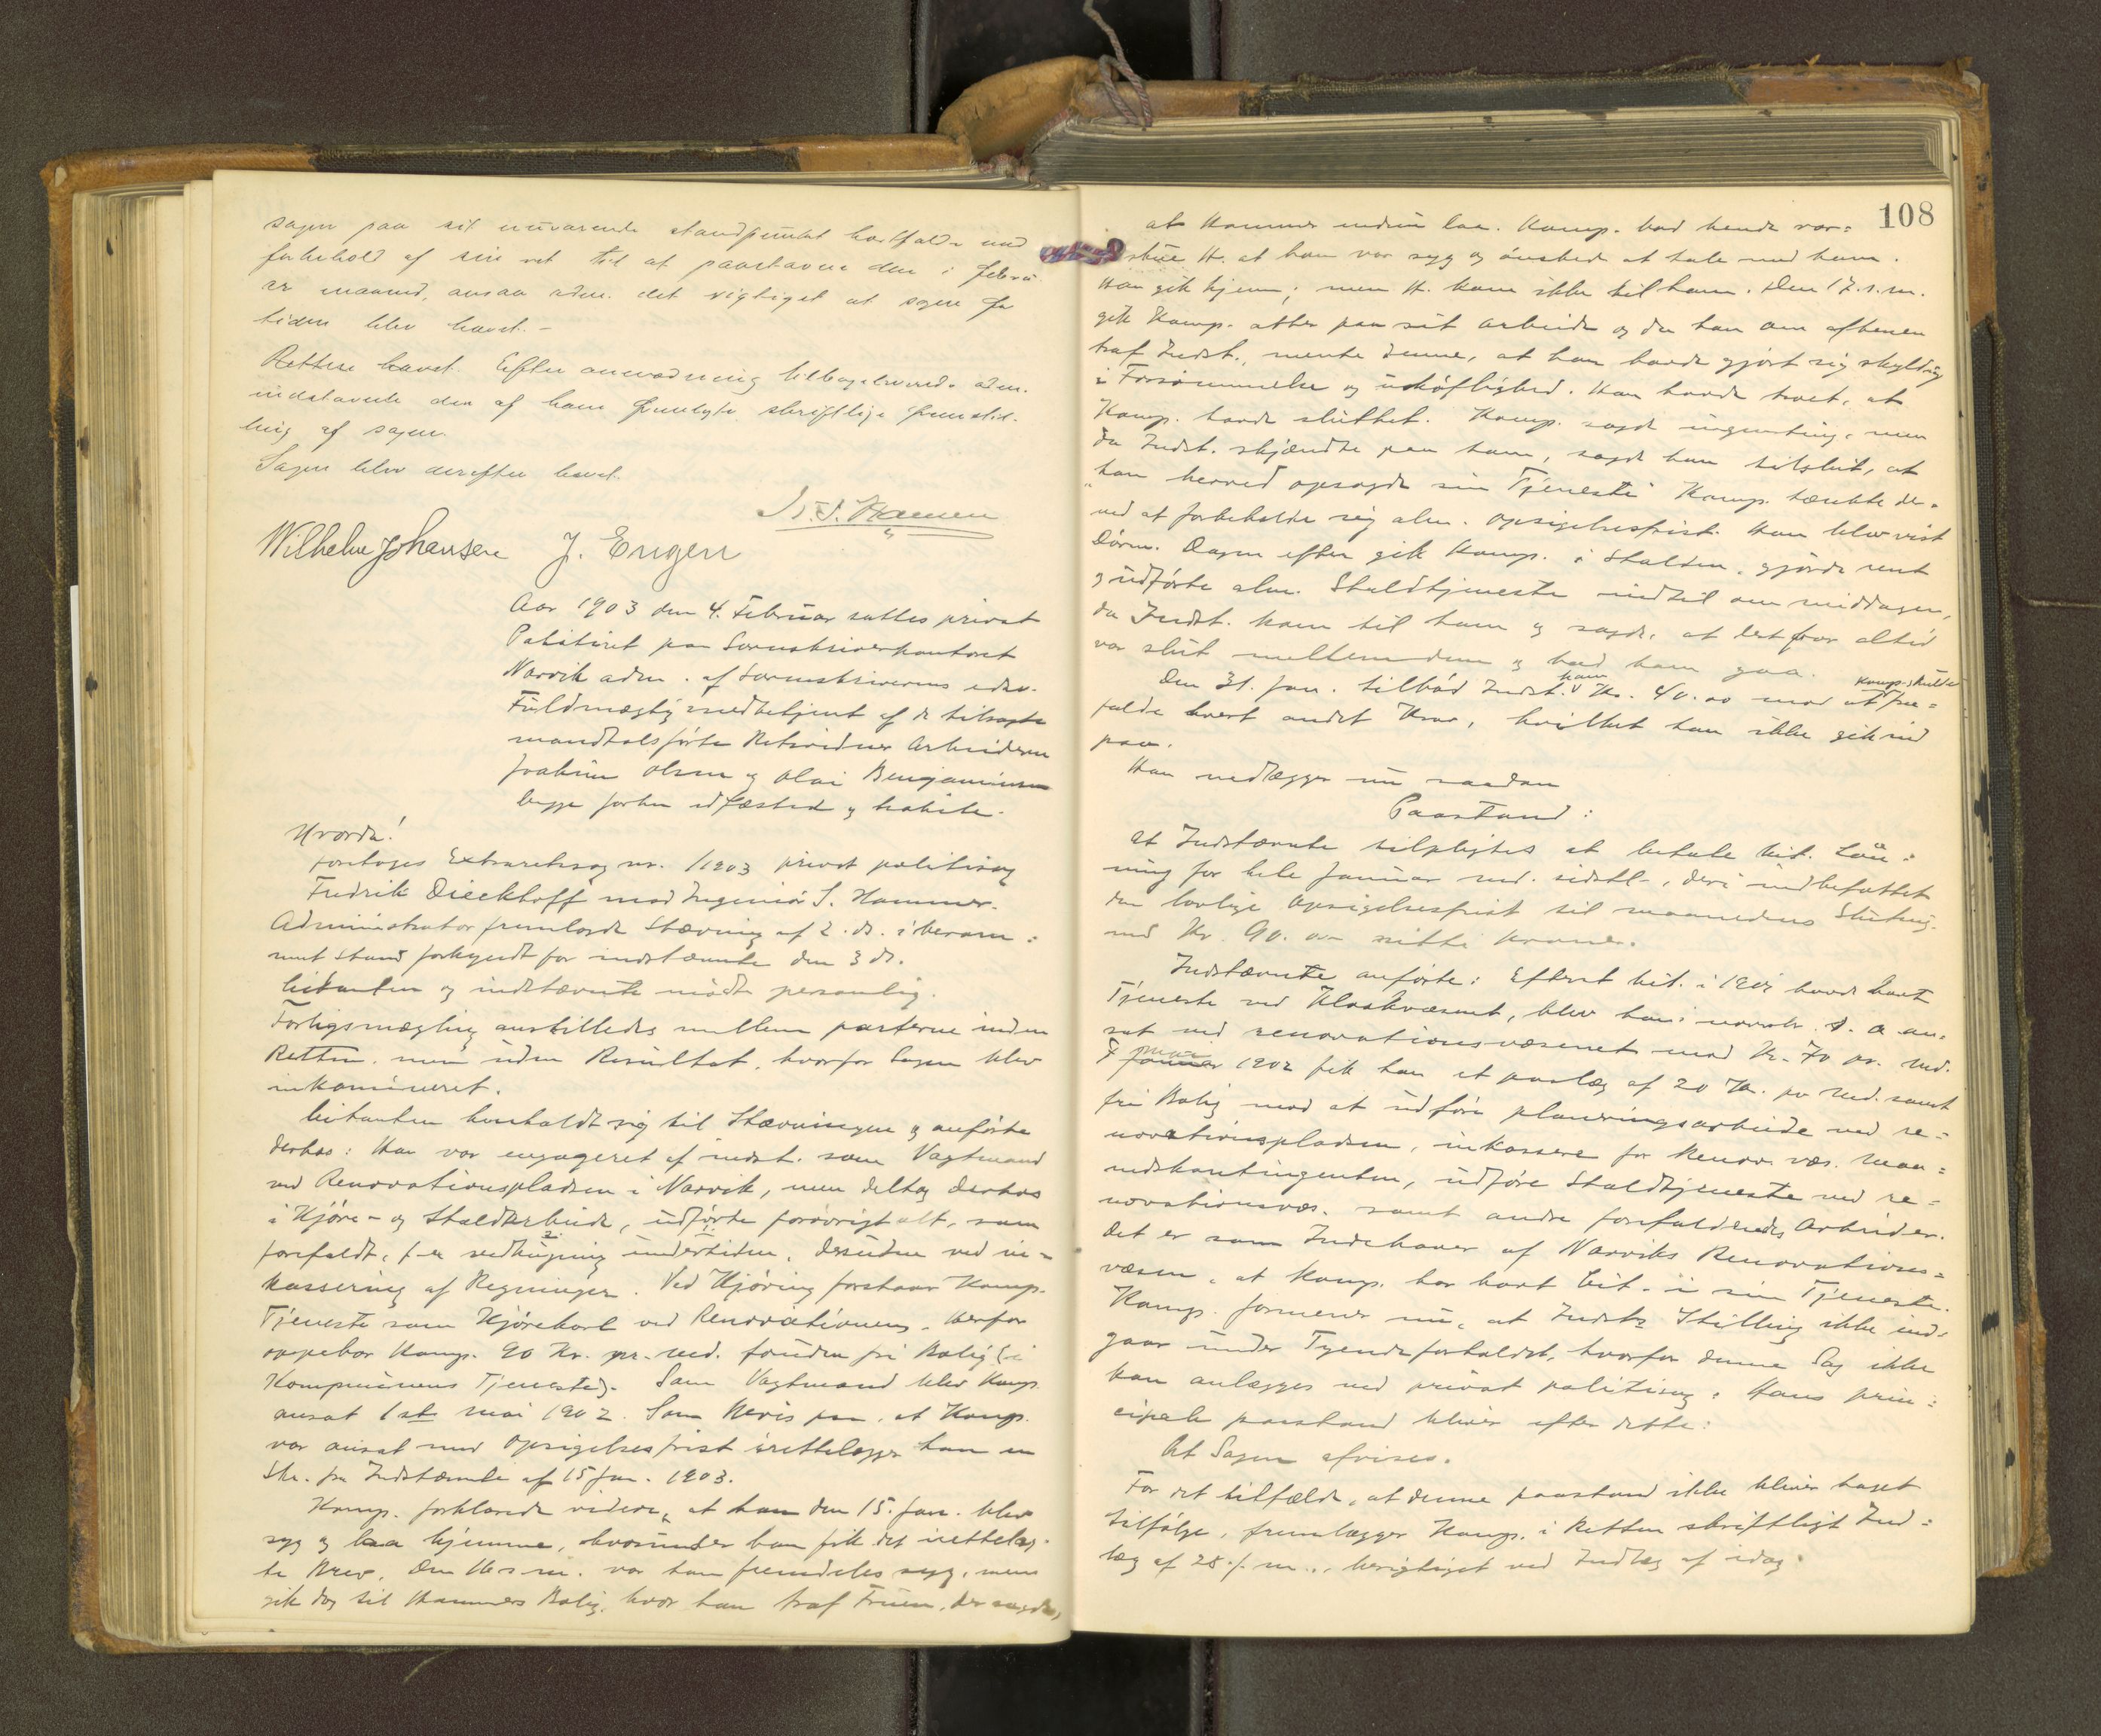 sagen paa sit nuværende standpunkt bortfalde med
forbehold af sin ret til at paastævne den i febru
ar maaned, ansaa adm. det rigtigst at sagen for
tiden blev hævet. –
Retten hævet. Efter anmodning tilbageleverede adm.
indstævnte den af ham fremlagte skriftlige fremstil-
ling af sagen.
Sagen blev derefter hævet.
Wilhelm Johansen J. Engen
Aar 1903 den 4. Februar sattes privat
Politiret paa Sorenskriverkontoret
Narvik adm. af Sorenskriverens edsv.
Fuldmægtig medbetjent af de tilsagte
mandtalsførte Retsvidner Arbeiderne
Joakim Olsen og Olai Benjaminsen
begge forhen edfæsted og habile.
Hvorda!
foretoges Extraretssag nr. 1/1903 privat politisag
Fredrik Dieckhoff mod Ingeniør S. Hammer.
Administrator fremlagde Stævning af 2. ds. i beram:
met stand forkyndt for indstævnte den 3 ds.
Citanten og indstævnte mødte personlig.
Forligsmægling anstilledes mellem parterne inden
Retten, men uden Resultat, hvorfor Sagen blev
inkamineret.
Citanten henholdt sig til Stævningen og anførte
derhos: Han var engageret af indst. som Vagtmand
ved Renovationspladsen i Narvik, men deltog derhos
i Kjøre- og Staldarbeide, udførte forøvrigt alt, som
forefaldt, f. ex vedhugning undertiden, desuden ved in-
kassering af Regninger. Ved Kjøring forstaar Komp.
Tjeneste som Kjørekarl ved Renovationen. Herfor
oppebar Komp. 90 Kr. pr. md. foruden fri Bolig (i
Kompaniens Tjeneste). Som Vagtmand blev Komp.
ansat 1ste mai 1902. Som Bevis paa, at Komp.
var ansat med Opsigelsesfrist irettelægger han en
Skr. fra Indstævnte af 15 Jan. 1903.
Komp. forklarede videre, at han den 15. Jan. blev
syg og laa hjemme, hvorunder han fik det irettelag-
te Brev. Den 16 s.m. var han fremdeles syg, men
gik dog til Hammers Bolig, hvor han traf Fruen, der sagde,
108
at Hammer endnu laa. Komp. bad hende var=
skue H. at han var syg og ønsked at tale med ham.
Han gik hjem; men H. kom ikke til ham. Den 17. s. m.
gik Komp. atter paa sit arbeide og da han om aftenen
traf Indst., mente denne, at han havde gjort sig skyldig
i Forsømmelse og uhøflighed. Han havde troet, at
Komp. havde sluttet. Komp. sagde ingenting, men
da Indst. skjændte paa ham, sagde han tilslut, at
"han herved opsagde sin Tjeneste" Komp. tænkte der-
ved at forbeholde sig alm. Opsigelsesfrist. Han blev vist
Døren. Dagen efter gik Komp. i Stalden, gjorde rent
og udførte alm. Staldtjeneste indtil om middagen,
da Indst. kom til ham og sagde, at det for altid
var slut mellem dem og bad ham gaa.
Den 31. Jan. tilbød Indst. ham Kr. 40.00 mod at Komp. skulde fra=
falde hvert andet Krav, hvilket han ikke gik ind
paa.
Han nedlægger nu saadan
Paastand:
at Indstævnte tilpligtes at betale Cit. Løn=
ning for hele Januar md. sidstl., deri indbefattet
den lovlige Opsigelsesfrist til maanedens Slutning
med Kr. 90.00 nitti Kroner.
Indstævnte anførte: Efterat Cit. i 1901 havde havt
Tjeneste ved Kloakvæsenet, blev han i novbr. s. a. an-
sat ved renovationsvæsenet mod Kr. 70 pr. md.
I mai 1902 fik han et paalæg af 20 Kr. pr Md. samt
fri Bolig mod at udføre planeringsarbeide ved re=
novationspladsen, inkassere for Renov. væs. maa=
nedskontingenten, udføre Staldtjeneste ved re=
novationsvæs. samt andre forefaldende Arbeider.
Det er som Indehaver af Narviks Renovations=
væsen, at Komp. har havt Cit. i sin Tjeneste.
Komp. formener nu, at Indsts Stilling ikke ind-
gaar under Tyendeforholdet, hvorfor denne Sag ikke
kan anlægges ved privat politisag. Hans prin=
cipale paastand bliver efter dette:
At Sagen afvises.
For det tilfælde, at denne paastand ikke bliver taget
tilfølge, fremlægger Komp. i Retten skriftligt Ind=
læg af 28. f. m., berigtiget ved Indlæg af idag.